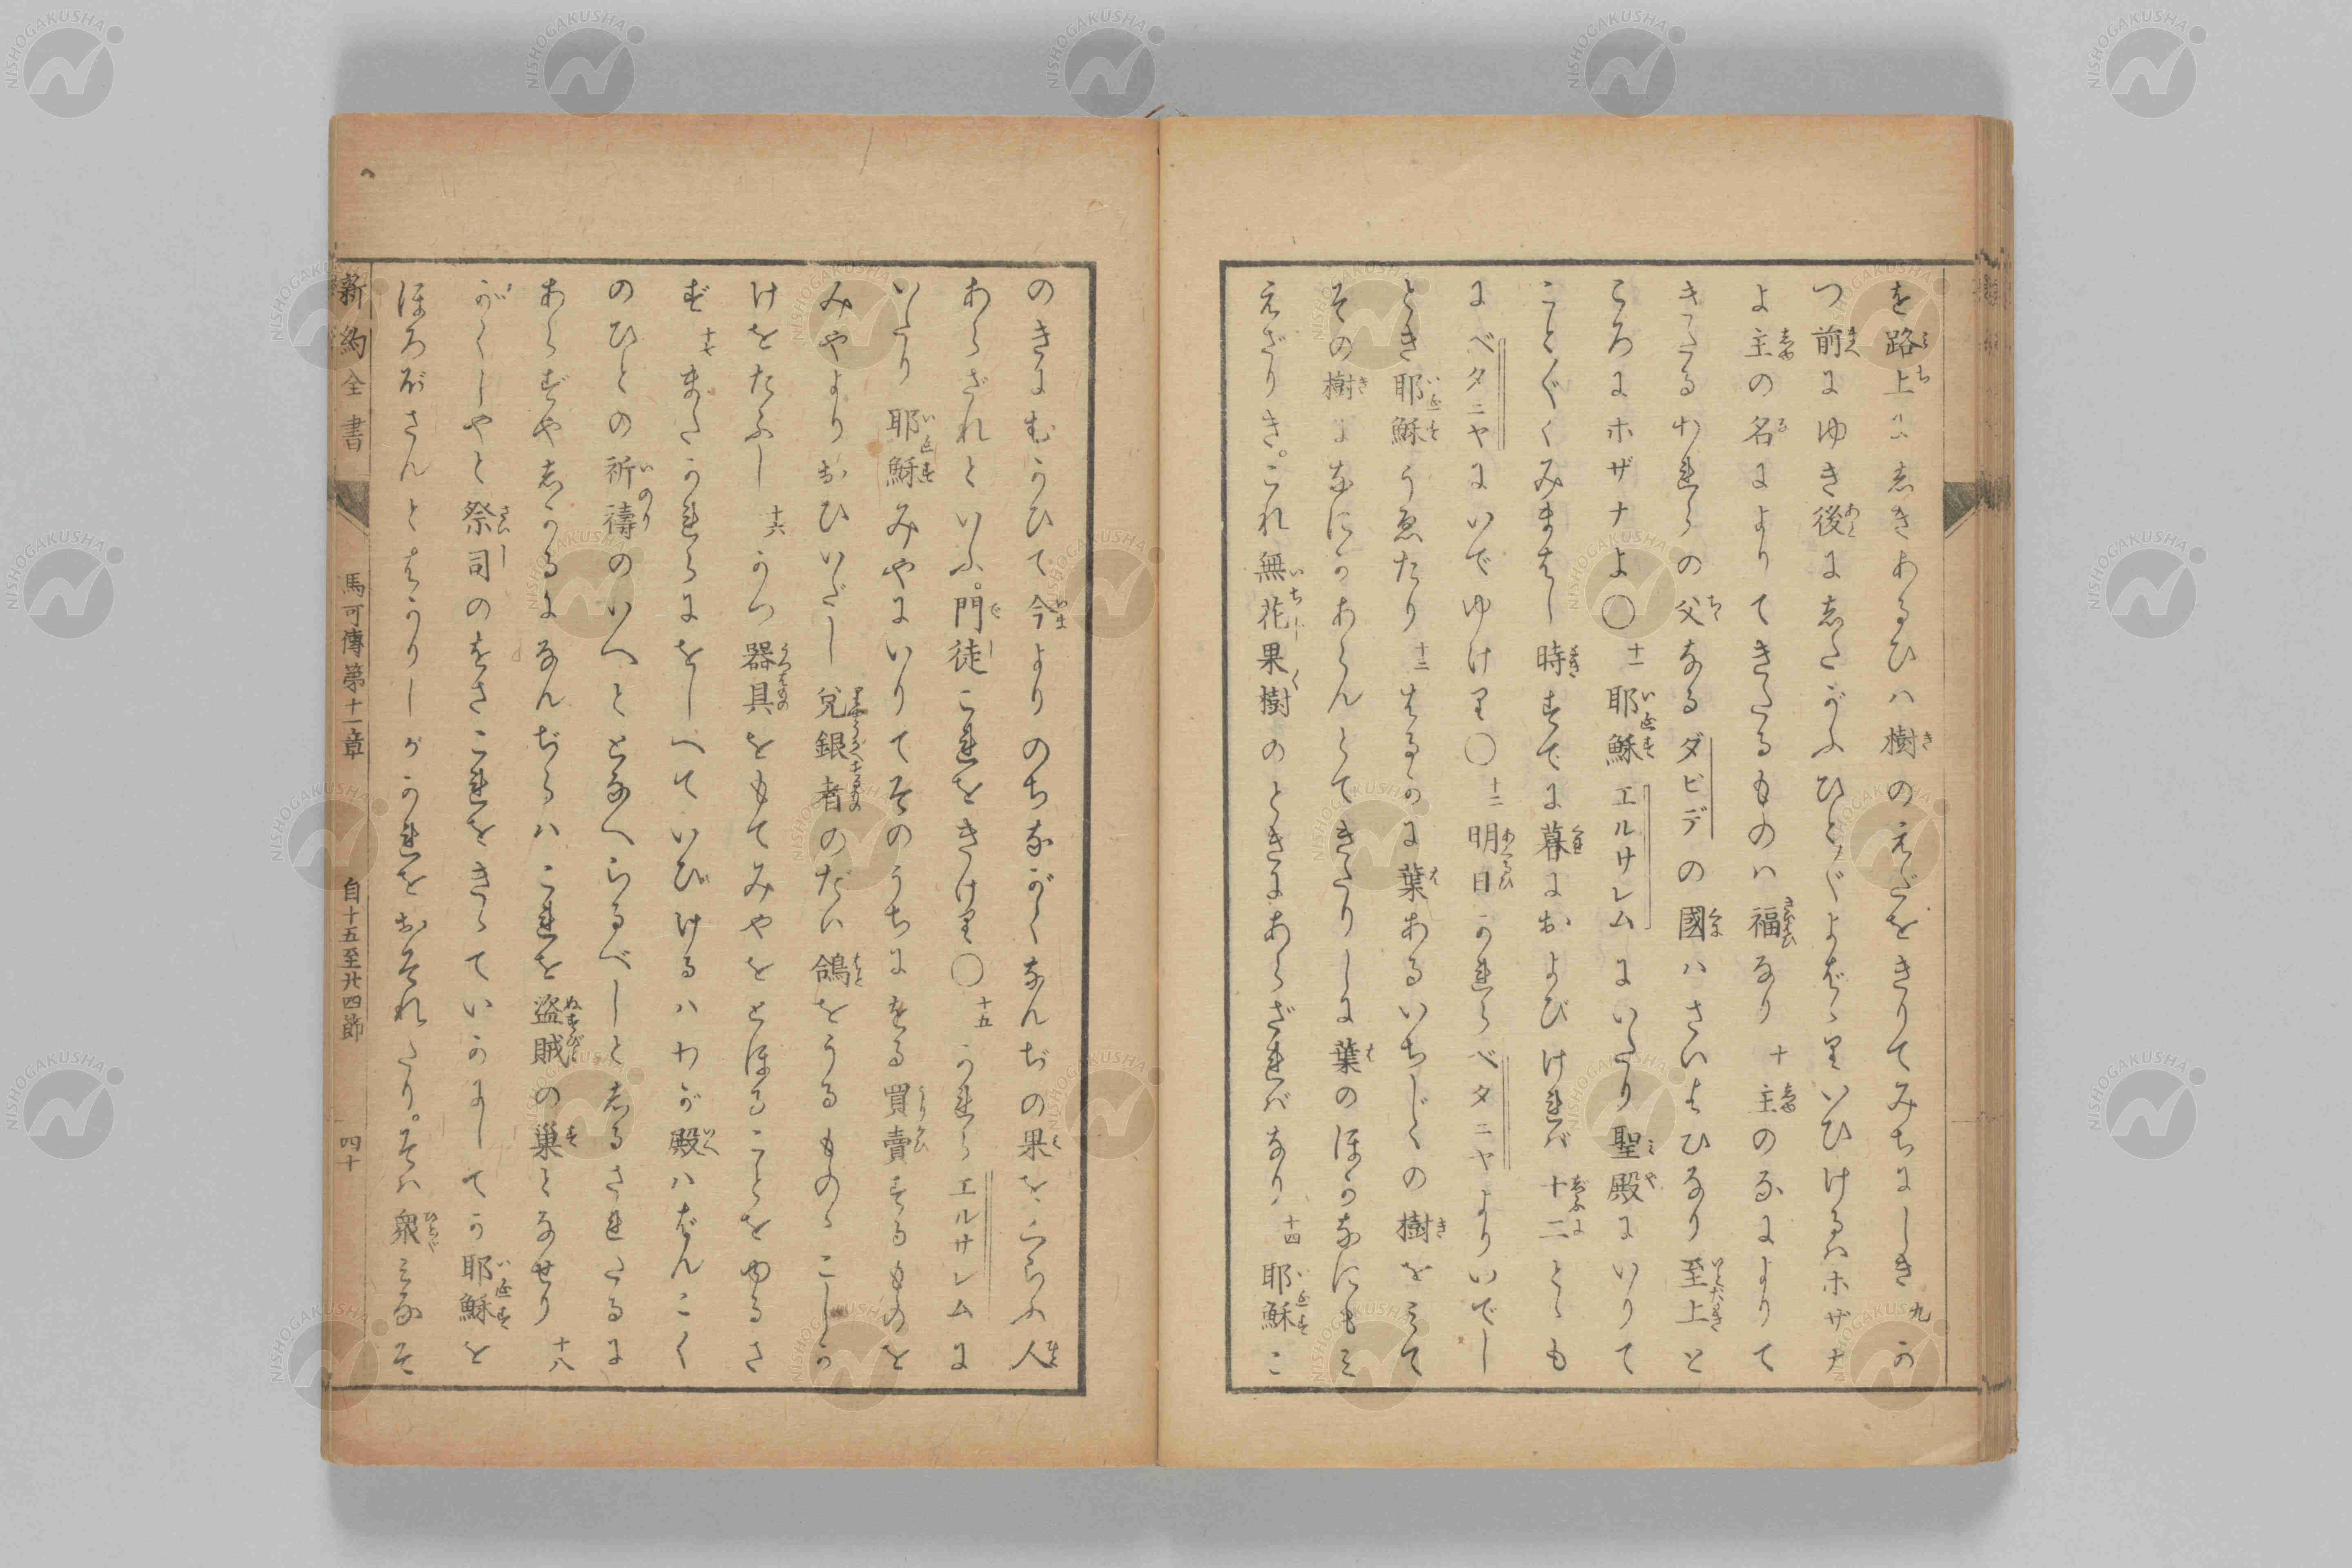 を路上にしきあるひハ樹のえだをきりてみちにしき 九 か
つ前にゆき後にしたがふひと〴〵よばゝりいひけるハホザナ
よ主の名によりてきたるものハ福なり 十 主のなによりて
きたるわれらの父なるダビデの國ハさいはひなり至上と
ころにホザナよ〇 十一 耶穌エルサレムにいたり聖殿にいりて
こと〴〵くみまはし時すでに暮におよびけれバ十二とゝも
にベタニヤにいでゆけり〇 十二 明日かれらベタニヤよりいでし
とき耶穌うゑたり 十三 はるかに葉あるいちじくの樹をみて
その樹になにかあらんとてきたりしに葉のほかなにもみ
えざりき。これ無花果樹のときにあらざれバなり 十四 耶穌こ
のきにむかひて今よりのちながくなんぢの果をくらふ人
あらざれといふ。門徒これをきけり〇 十五 かれらエルサレムに
いたり耶穌みやにいりてそのうちにをる買賣するものを
みやよりおひいだし兌銀者のだい鴿をうるものゝこしか
けをたふし 十六 かつ器具をもてみやをとほることをゆるさ
ず 十七 またかれらにをしへていひけるハわが殿ハばんこく
のひとの祈禱のいへととなへらるべしとしるされたるに
あらずやしかるになんぢらハこれを盗賊の巢となせり 十八
がくしやと祭司のをさこれをきゝていかにしてか耶穌を
ほろぼさんとはかりしがかれをおそれたり。そハ衆みなそ
新約全書 馬可傳第十一章 自十五至廿四節 四十
NISHOGAKUSHA